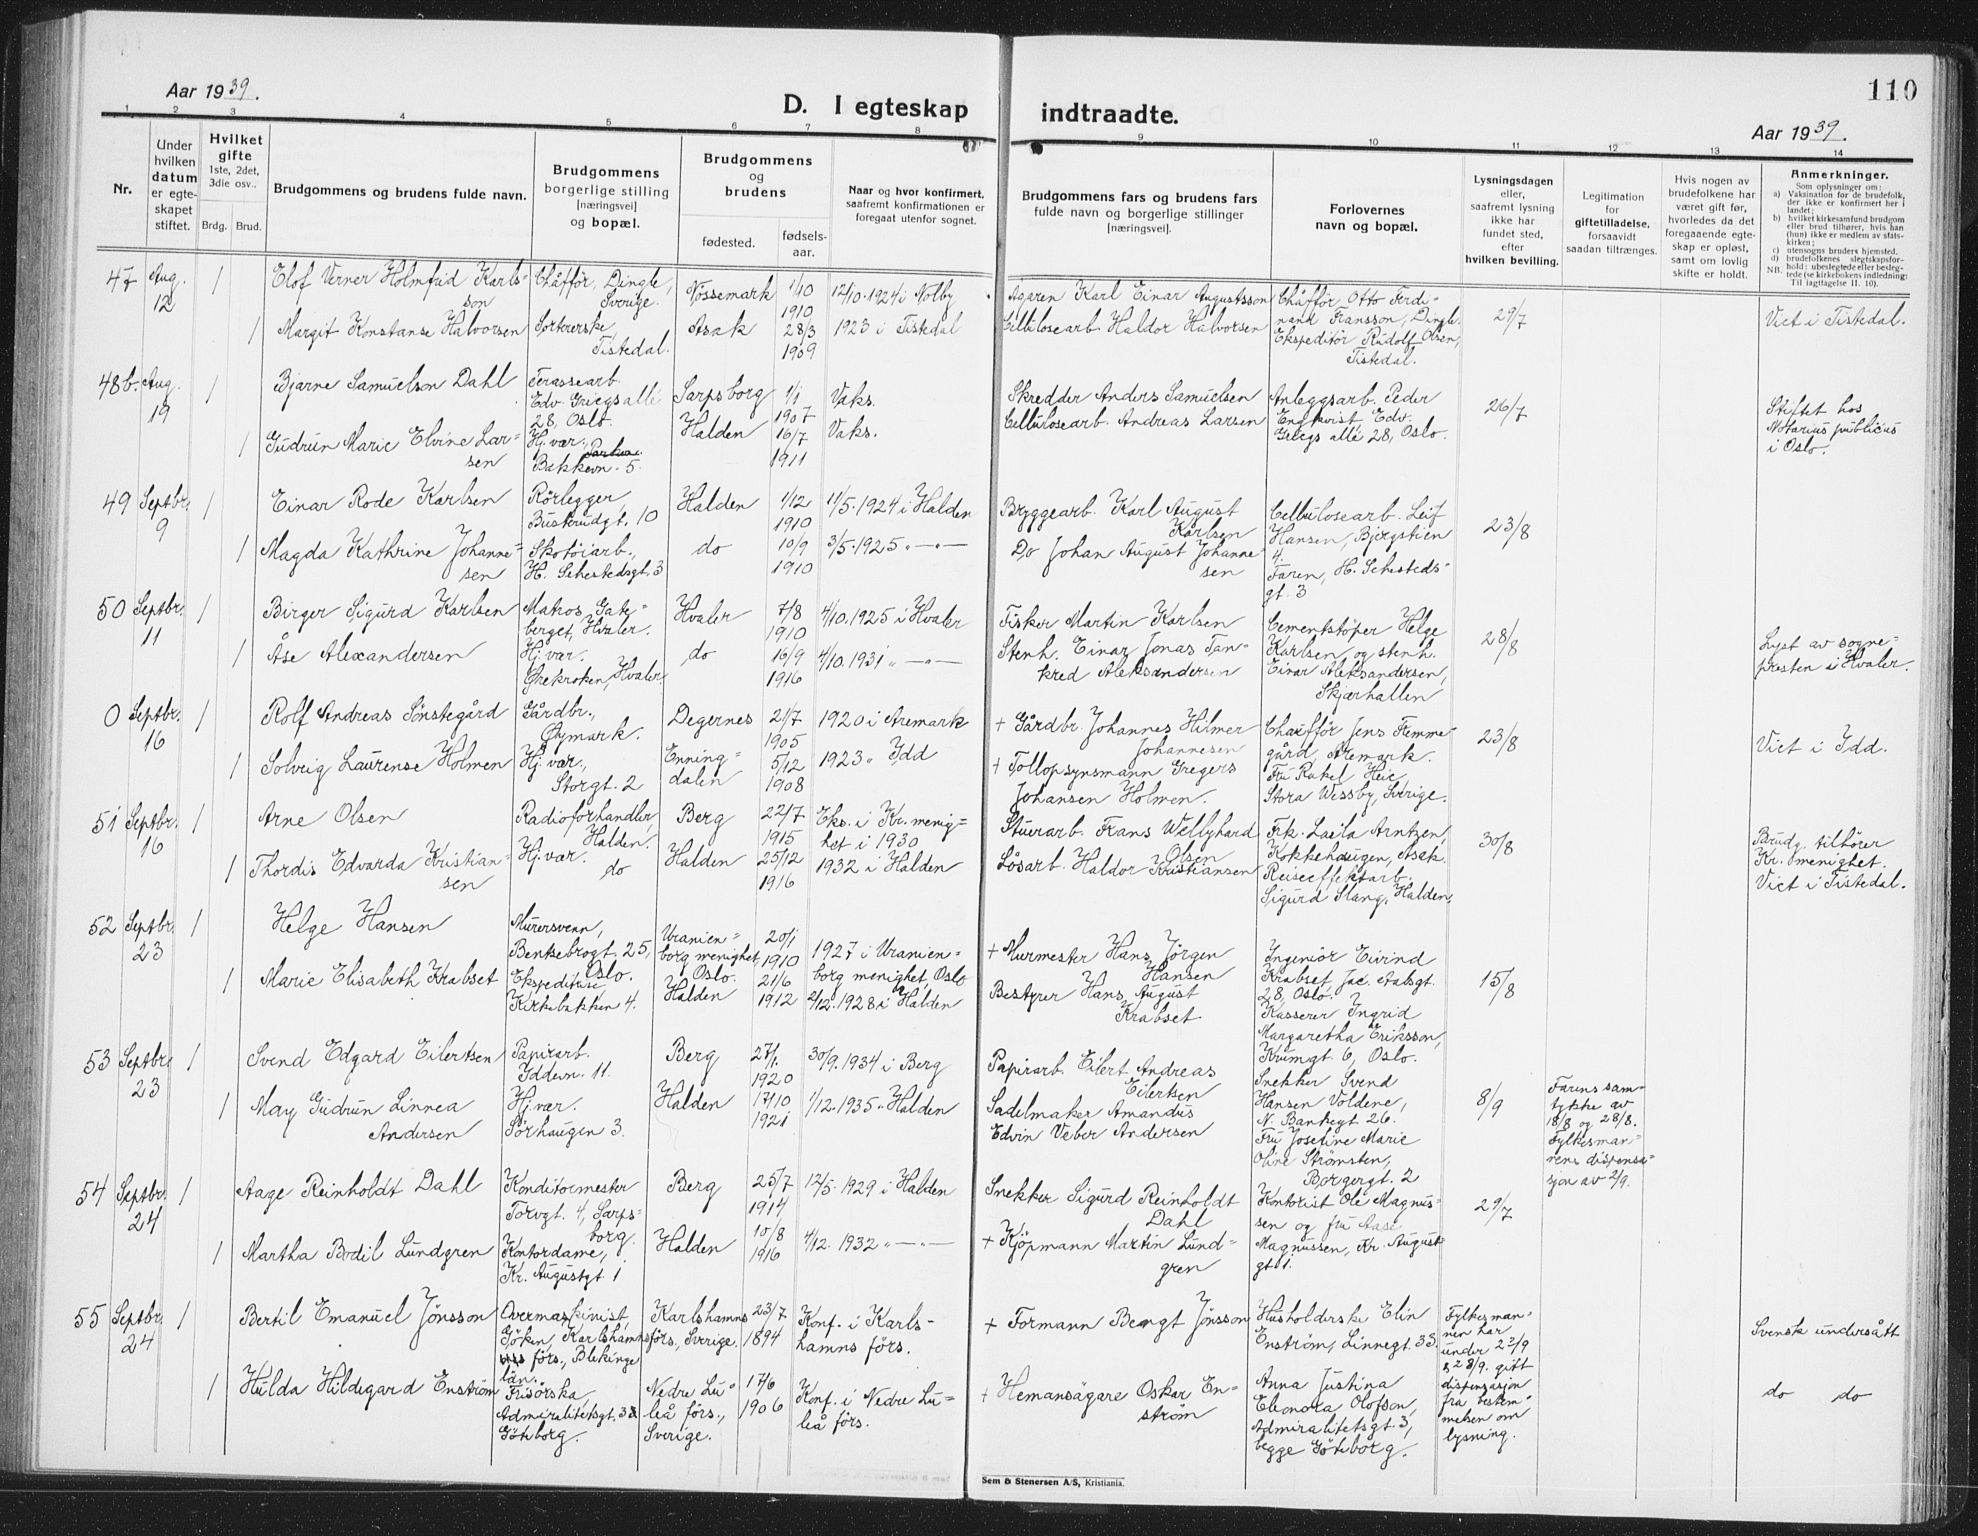 110
Aar 1939.
D. I egteskap indtraadte.
Aar 1939.
1 2 3 4 5 6 7 8 9 10 11 12 13 14
Nr.
Under hvilken datum er egteskapet stiftet.
Hvilket gifte
1ste, 2det, 3die osv..
Brdg. Brud.
Brudgommens og brudens fulde navn.
Brudgommens borgerlige stilling [næringsvei] og bopæl.
Brudgommens og brudens
fødested.
fødsels-aar.
Naar og hvor konfirmert, saafremt konfirmationen er foregaat utenfor sognet.
Brudgommens fars og brudens fars fulde navn og borgerlige stillinger [næringsvei].
Forlovernes navn og bopæl.
Lysningsdagen eller, saafremt lysning ikke har fundet sted, efter hvilken bevilling.
Legitimation for giftetilladelse, forsaavidt saadan tiltrænges.
Hvis nogen av brudefolkene har været gift før, hvorledes da det foregaaende egteskap er opløst, samt om lovlig skifte er holdt.
Anmerkninger.
Som oplysninger om:
a) Vaksination for de brudefolk, der ikke er konfirmert her i landet;
b) hvilket kirkesamfund brudgom eller brud tilhører, hvis han (hun) ikke er medlem av statskirken;
c) utensogns bruders hjemsted.
d) brudefolkenes slegtskapsforhold: ubeslegtede eller beslegtede (se kirkebokens indledning:
NB. Til iagttagelse II. 10).
47 Aug. 12 1 Elof Verner Holmfrid Karlsson Chåfför, Dingle, Sverige. Nössemark 1/10 1910 12/10.1924 i Nolby Agaren Karl Einar Augustsson Chåfför Otto Ferdinand Fransson, Dingle. 29/7 Viet i Tistedal.
1 Margit Konstanse Halvorsen Sorterske, Tistedal. Asak 28/3 1909 1923 i Tistedal Cellulosearb. Haldor Halvorsen Ekspeditör Rudolf Olsen, Tistedal.
48b. Aug. 19 1 Bjarne Samuelson Dahl Terassearb. Edv. Griegs allé 28, Oslo. Sarpsborg 1/1 1907 Vaks. Skredder Anders Samuelsen Anleggsarb. Peder Engkvist Edv. Griegs allé 28, Oslo. 26/7 Stiftet hos Notarius publicus i Oslo.
1 Gudrun Marie Elvine Larsen Hj.vær., Bakkevn. 5. Halden 16/7 1911 Vaks. Cellulosearb. Andreas Larsen
49 Septbr. 9 1 Einar Rode Karlsen Rörlegger Buskrudgt. 10 Halden 1/12 1910 11/5.1924 i Halden Bryggearb. Karl August Karlsen Cellulosearb. Leif Hansen, Bjergstien 4. 23/8
1 Magda Kathrine Johannesen Skotöiarb., H. Sehestedsgt. 3 do 10/9 1910 3/5.1925 „—„— Do Johan August Johannesen Faren, H. Sehestedsgt. 3
50 Septbr. 11 1 Birger Sigurd Karlsen Matros, Gateberget, Hvaler. Hvaler 7/8 1910 4/10.1925 i Hvaler Fisker Martin Karlsen Cementstöper Helge Karlsen, og stenh. Einar Aleksandersen, Skjærhallen 28/8 Lyst av sognepresten i Hvaler.
1 Åse Alexandersen Hj.vær. Ørekroken, Hvaler. do 16/9 1916 4/10.1931 „—„— Stenh. Einar Jonas Tankred Aleksandersen
0 Septbr. 16 1 Rolf Andreas Sönstegård Gårdbr., Øymark. Degernes 21/7 1905 1920 i Aremark + Gårdbr. Johannes Hilmer Johannesen Chaufför Jens Femmegård, Aremark. 23/8 Viet i Idd.
1 Solveig Laurense Holmen Hj.vær., Storgt. 2 Enningdalen 5/12 1908 1923 „ Idd + Tollopsynsmann Gregers Johansen Holmen. Fru Rakel Heie, Stora Wessby, Sverige.
51 Septbr. 16 1 Arne Olsen Radioforhandler, Halden. Berg 22/7 1915 Eks. i Kr. menighet i 1930 Stuerarb. Frans Wellyhard Olsen Frk. Laila Arntzen, Kokkehaugen, Asak. 30/8 Brudg. tilhörer Kr. menighet. Viet i Tistedal.
1 Thordis Edvarda Kristiansen Hj.vær. do Halden 25/12 1916 1932 i Halden Lösarb. Haldor Kristiansen Reiseeffektarb. Sigurd Slang, Halden.
52 Septbr. 23 1 Helge Hansen Murersvenn, Bentsebrogt. 25, Oslo. Uranienborg menighet, Oslo. 20/1 1910 1927 i Uranienborg menighet, Oslo + Murmester Hans Jörgen Hansen Ingeniör Eivind Krabset, Jac. Aalsgt. 28, Oslo. 15/8
1 Marie Elisabeth Krabset Ekspeditrise Kirkebakken 4. Halden 21/6 1912 2/12.1928 i Halden Bestyrer Hans August Krabset Kasserer Ingrid Margaretha Eriksson, Krumgt. 6, Oslo.
53 Septbr. 23 1 Svend Edgard Eilertsen Papirarb. Iddevn. 11. Berg 27/1. 1920 30/9.1934 i Berg Papirarb. Eilert Andreas Eilertsen Snekker Svend Hansen Voldene, N. Bankegt 26. 8/9 Farens samtykke av 18/8 og 28/8. Fylkesmannens dispensasjon av 2/9.
1 May Gudrun Linnea Andersen Hj.vær. Sörhaugen 3. Halden 17/10 1921 1/12.1935 „ Halden Sadelmaker Amandus Edvin Veber Andersen Fru Josefine Marie Oline Strömsten, Borgergt. 2
54 Septbr. 24 1 Aage Reinholdt Dahl Konditormester Torvgt. 4, Sarpsborg. Berg 25/7 1914 12/5.1929 i Halden Snekker Sigurd Reinholdt Dahl Kontorist Ole Magnussen og fru Aase Magnussen, Kr. Augustgt 1. 29/7
1 Martha Bodil Lundgren Kontordame, Kr. Augustgt 1 Halden 10/8 1916 4/12.1932 „—„— + Kjöpmann Martin Lundgren
55 Septbr. 24 1 Bertil Emanuel Jönsson Overmaskinist, Göken, Karlshamns förs., Blekinge län. Karlshamns förs., Sverige. 23/7 1894 Konf. i Karlshamns förs. + Formann Bengt Jönsson Husholderske Elin Enström, Linnegt. 38. Fylkesmannen har under 22/9 & 28/9. gitt dispensasjon fra bestemmelsen om lysning. Svensk undersått
1 Hulda Hildegard Enström Frisörska Admiralitetsgt. 3 Göteborg. Nedre Luleå förs., Sverige. 17/6 1906 Konf. i Nedre Luleå förs. + Hemansägare Oskar Enström Anna Justina Eleonora Olofson, Admiralitetsgt. 3, begge Göteborg. do do
Sem & Stenersen A/S, Kristiania.